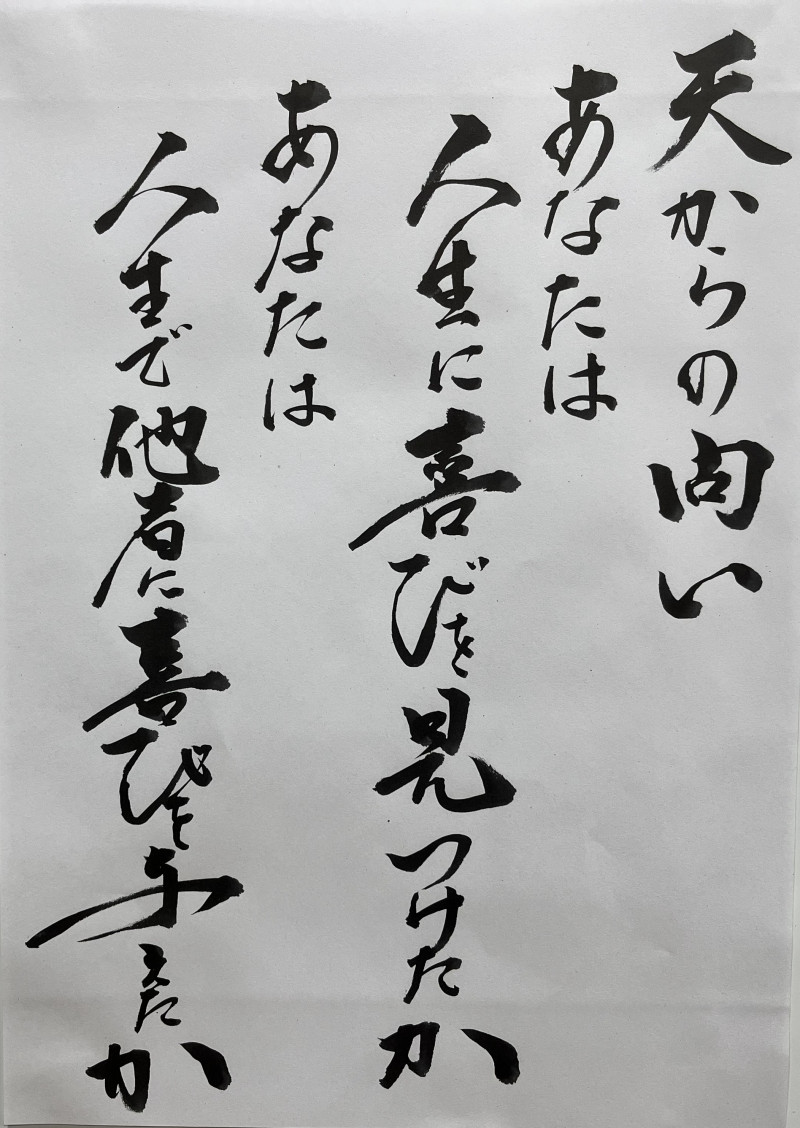 天からの問い
あなたは
人生に喜びを見つけたか
あなたは
人生で他者に喜びを与えたか